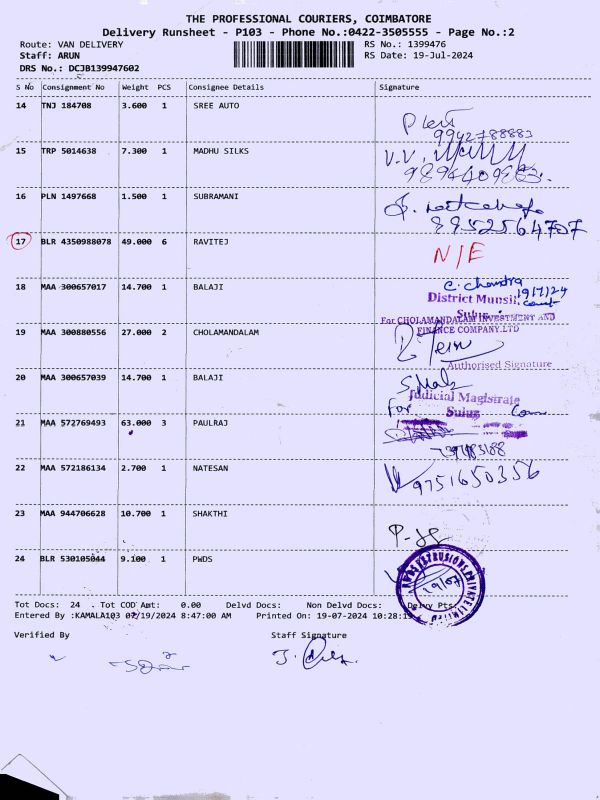 THE PROFESSIONAL COURIERS, COIMBATORE
Delivery Runsheet - P103 - Phone No.:0422-3505555 - Page No.:2
Route: VAN DELIVERY RS No.: 1399476
Staff: ARUN RS Date: 19-Jul-2024
DRS No.: DCJB139947602
S No Consignment No Weight PCS Consignee Details Signature
14 TNJ 184708 3.600 1 SREE AUTO
9942788883
15 TRP 5014638 7.300 1 MADHU SILKS V.V.
16 PLN 1497668 1.500 1 SUBRAMANI
9952564707
17 BLR 4350988078 49.000 6 RAVITEJ N/E
18 MAA 300657017 14.700 1 BALAJI C. Chandra
District Munsif 19/7/24
Court
Sulur
For CHOLAMANDALAM INVESTMENT AND
19 MAA 300880556 27.000 2 CHOLAMANDALAM FINANCE COMPANY.LTD
Authorised Signature
20 MAA 300657039 14.700 1 BALAJI
Judicial Magistrate
For Sulur
21 MAA 572769493 63.000 3 PAULRAJ
22 MAA 572186134 2.700 1 NATESAN 9751650356
23 MAA 944706628 10.700 1 SHAKTHI
24 BLR 530105044 9.100 1 PWDS
19/07
Tot Docs: 24 . Tot COD Amt: 0.00 Delvd Docs: Non Delvd Docs: Delvy Pts:
Entered By :KAMALA103 07/19/2024 8:47:00 AM Printed On: 19-07-2024 10:28:19
Verified By Staff Signature